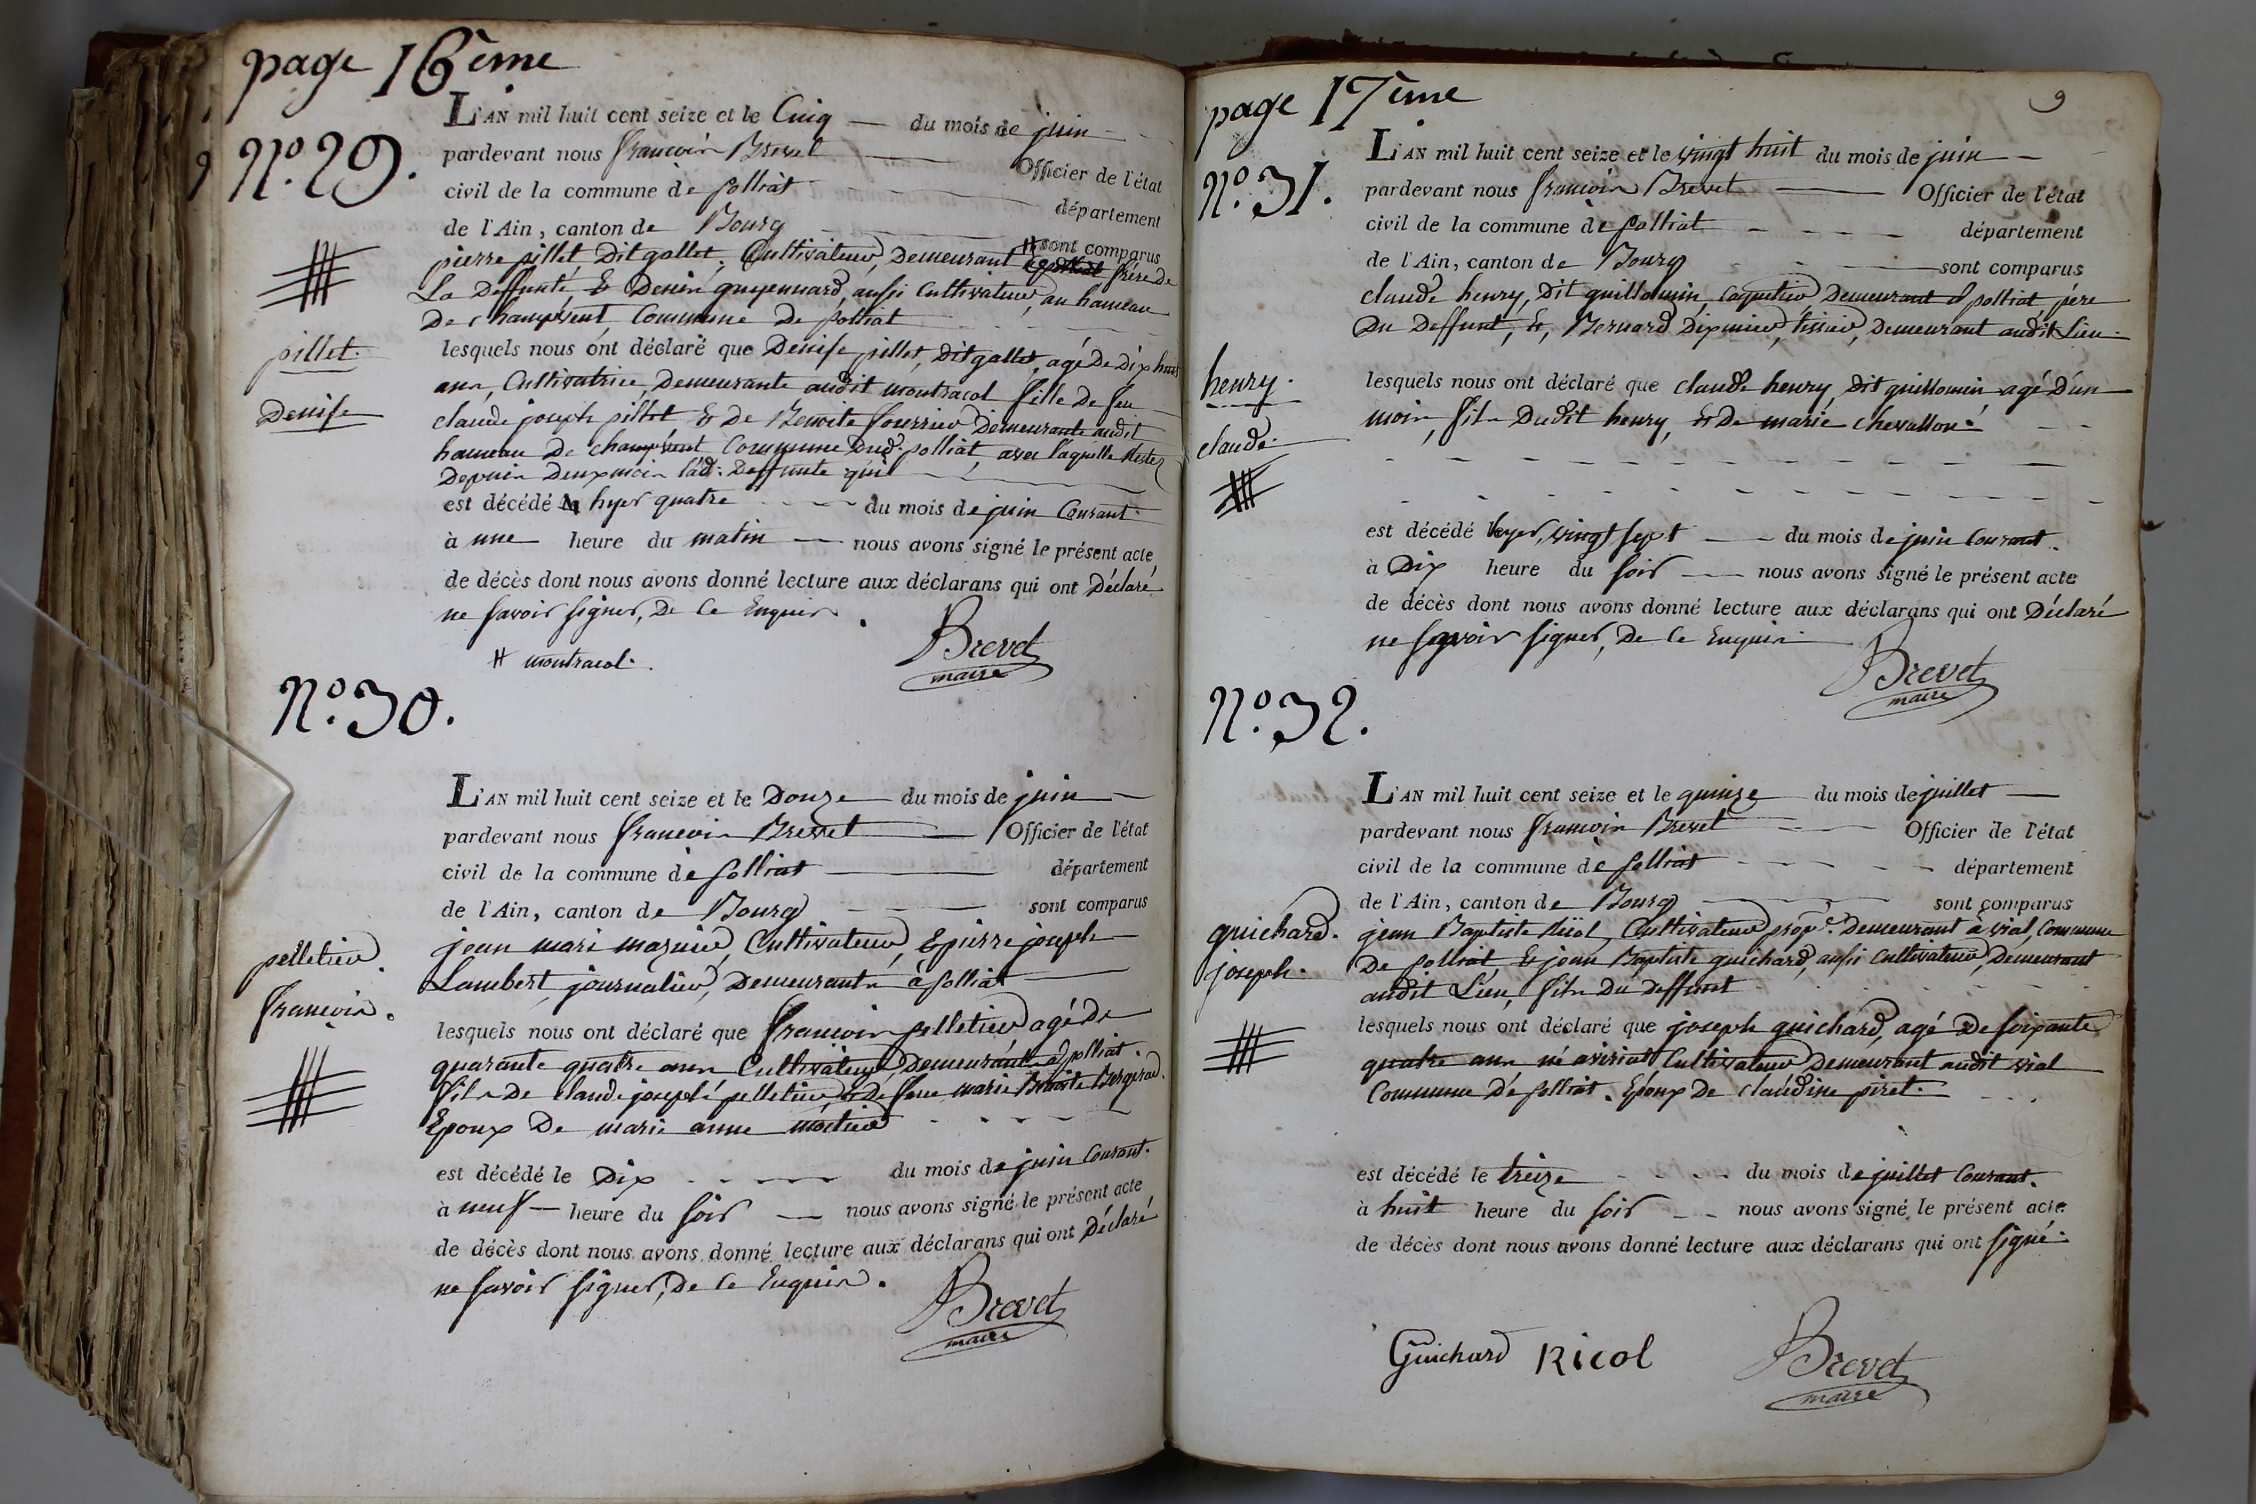 page 16ème
N.º 29.
L'AN mil huit cent seize et le Cinq du mois de juin
pardevant nous françois Brevet Officier de l'état
civil de la commune de polliat département
de l'Ain, canton de Bourg sont comparus
pierre pillet, Dit gallet, Cultivateur, Demeurant # frère de
La Deffunte, & Denis guyennard, aussi Cultivateur, au hameau
De champvent Commune De polliat
pillet.
Denise
lesquels nous ont déclaré que Denise pillet, Dit gallet, agé De Dix huit
ans, Cultivatrice, Demeurante audit montracol fille De feu
claude joseph pillet, & De Benoite fourrier Demeurante audit
hameau De champvent Commune dud. polliat, avec laquelle
Depuis Deux mois lad. Deffunte qui
est décédé hyer quatre du mois de juin Courant.
à une heure du matin nous avons signé le présent acte
de décès dont nous avons donné lecture aux déclarans qui ont Déclaré
ne savoir signer, De ce Enquis.
# montracol.
Brevet
maire
N.º 30.
L'AN mil huit cent seize et le Douze du mois de juin
pardevant nous françois Brevet Officier de l'état
civil de la commune de polliat département
de l'Ain, canton de Bourg sont comparus
jean mari marnier, Cultivateur, & pierre joseph
Lambert, journalier, Demeurants à polliat
pelletier.
françois.
lesquels nous ont déclaré que françois pelletier agé De
quarante quatre ans Cultivateur Demeurant à polliat.
fils De claude joseph pelletier, & De feue marie Benoite
Epoux De marie anne
est décédé le Dix du mois de juin Courant.
à neuf heure du soir nous avons signé le présent acte
de décès dont nous avons donné lecture aux déclarans qui ont Déclaré
ne savoir signer, De ce Enquis.
Brevet
maire
page 17ème
9
N.º 31.
L'AN mil huit cent seize et le vingt huit du mois de juin
pardevant nous françois Brevet Officier de l'état
civil de la commune de polliat département
de l'Ain, canton de Bourg sont comparus
claude henry, Dit guillomin, Coquetier Demeurant à polliat père
Du Deffunt, &, Bernard Dixmier, tissier, Demeurant audit Lieu.
henry.
claude.
lesquels nous ont déclaré que claude henry, Dit guillomin agé D'un
mois, fils Dudit henry, & De marie chevalloné
est décédé hyer, vingt sept du mois de juin Courant.
à Dix heure du soir nous avons signé le présent acte
de décès dont nous avons donné lecture aux déclarans qui ont Déclaré
ne savoir signer, De ce Enquis.
Brevet
maire
N.º 32.
L'AN mil huit cent seize et le quinze du mois de juillet
pardevant nous françois Brevet Officier de l'état
civil de la commune de polliat département
de l'Ain, canton de Bourg sont comparus
guichard.
joseph.
jean Baptiste Ricol, Cultivateur prop.re Demeurant à vial, Commune
De polliat & jean Baptiste guichard, aussi Cultivateur, Demeurant
audit Lieu, fils Du Deffunt
lesquels nous ont déclaré que joseph guichard, agé De soixante
quatre ans, né Cultivateur Demeurant audit vial
Commune De polliat. Epoux De claudine piret.
est décédé le treize du mois de juillet Courant.
à huit heure du soir nous avons signé le présent acte
de décès dont nous avons donné lecture aux déclarans qui ont signé.
Guichard Ricol Brevet
maire